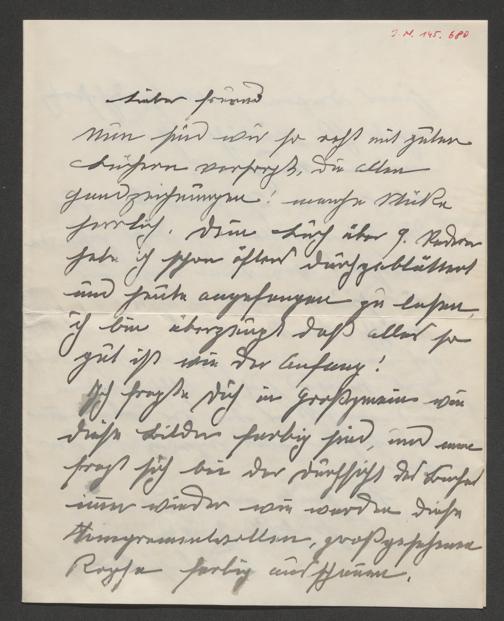 J.N. 145.680
Lieber Freund
Nun sind wir so recht mit guten
Büchern versorgt, die alten
Handzeichnungen! manche Stücke
herrlich. Dein Buch über J.
habe ich schon öfters durchgeblättert
und heute angefangen zu lesen,
ich bin überzeugt daß alles so
gut ist wie der Anfang!
Ich fragte Dich in Großgmain wie
diese Bilder farbig sind, und man
fragt sich bei der Durchsicht des Buches
immer wieder wie werden diese
großgesehenen
Köpfe farbig ausschauen.